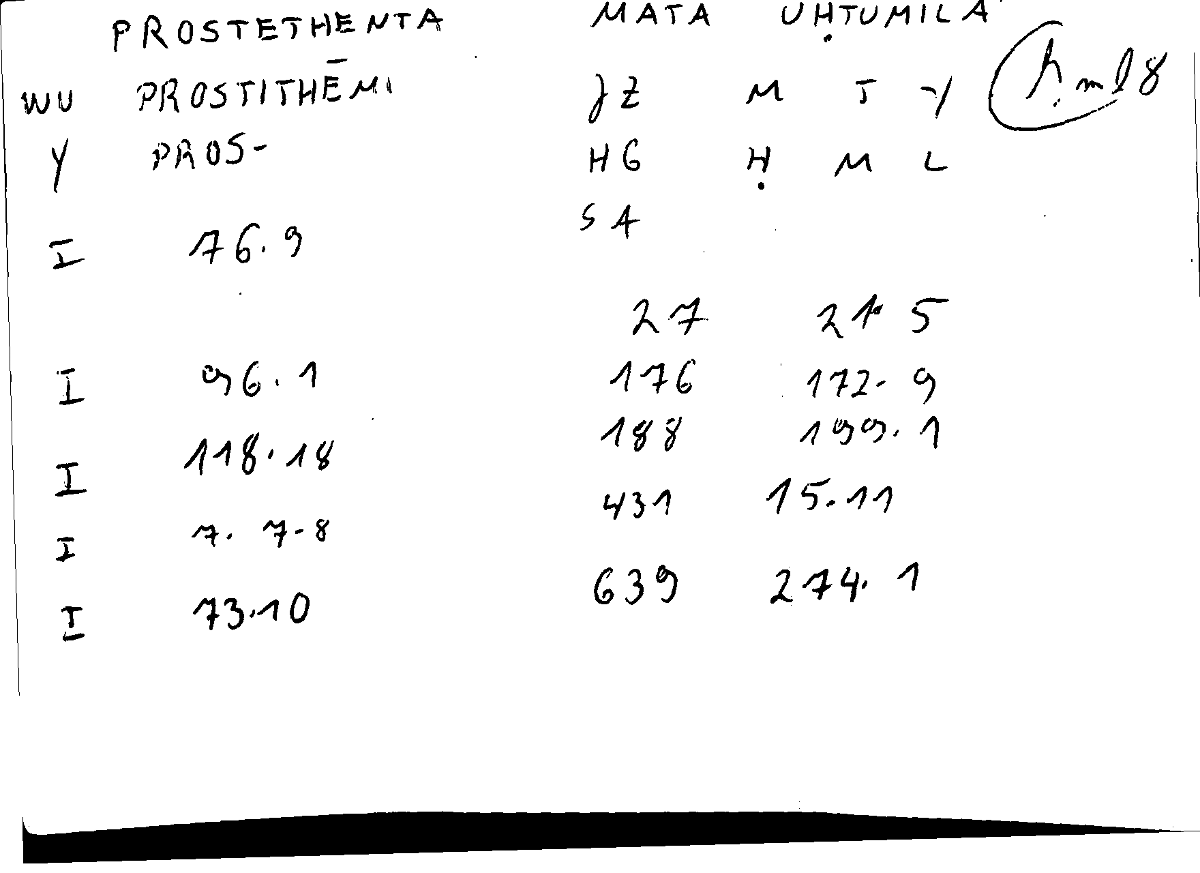 PROSTETHENTA MATA UḤTUMILA
WU PROSTITHĒMI JZ M T Y ḥml8
Y PROS- HG Ḥ M L
I 76.9 SA
27 21.5
I 96.1 176 172.9
I 118.18 188 199.1
I 7. 7-8 431 15.11
I 73.10 639 274.1